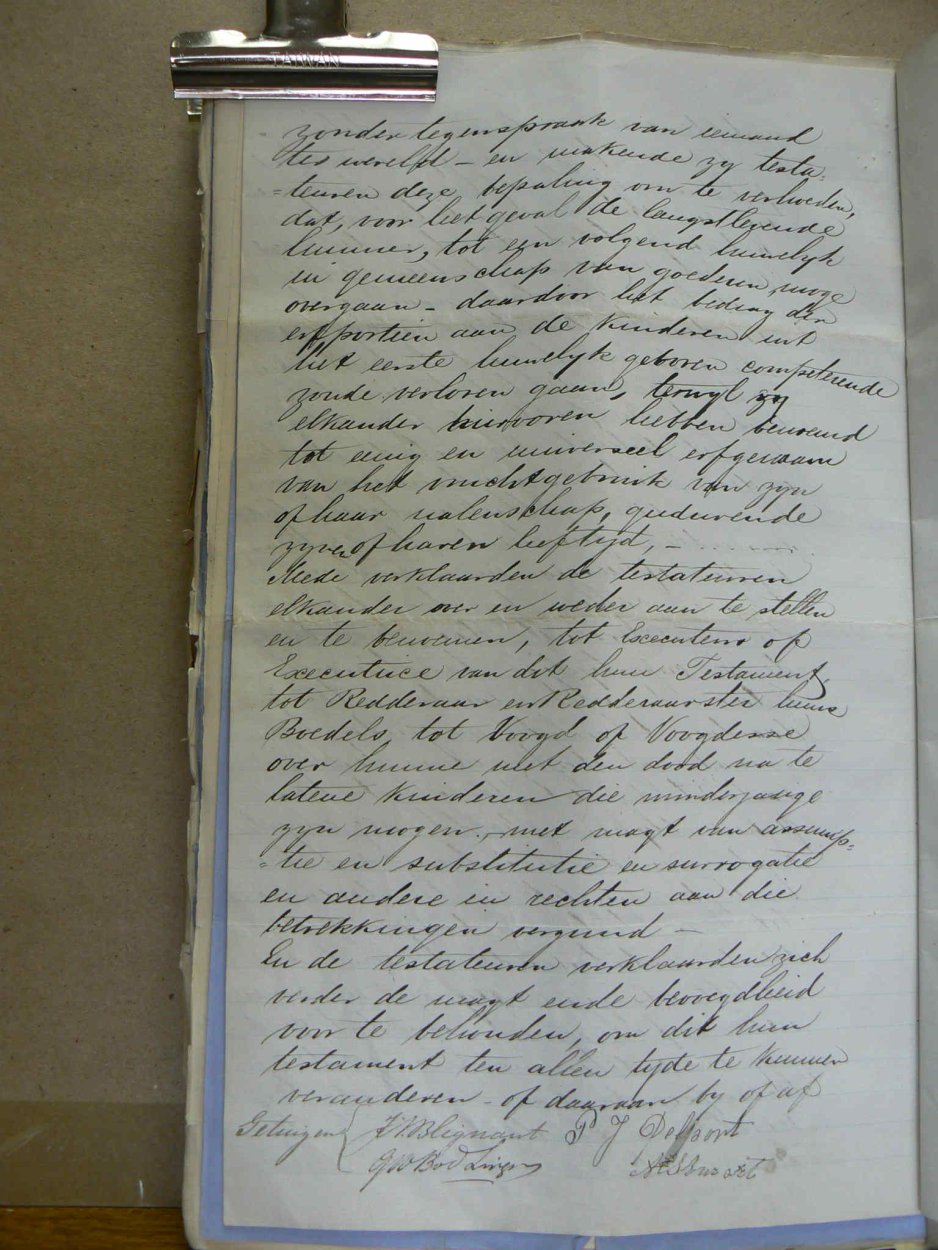 TAIWAN
zonder tegenspraak van iemand
ter wereld – en makende zy testa-
=teuren deze bepaling om te verhoeden,
dat, voor het geval de langstlevende
hunner, tot een volgend huwelyk
in gemeenschap van goederen moge
overgaan – daardoor het bedrag der
erfportien aan de kinderen uit
het eerste huwelyk geboren competerende
zoude verloren gaan, terwyl zy
elkander hiervoren hebben benoemd
tot eenig en universeel erfgenaam
van het vruchtgebruik van zyn
of haar nalenschap, gedurende
zynen of haren leeftijd, –
Mede verklaarden de testateuren
elkander over en weder aan te stellen
en te benoemen, tot Executeur of
Executrice van dit hun Testament,
tot Redderaar en Redderaarster huns
Boedels, tot Voogd of Voogdesse
over hunne met den dood na te
latene kinderen die minderjarige
zyn mogen., met magt van assump=
=tie en substitutie en surrogatie
en andere in rechten aan die
betrekkingen vergund –
En de testateuren verklaarden zich
verder de magt ende bevoegdheid
voor te behouden, om dit hun
testament ten allen tyde te kunnen
veranderen – of daaraan by of af
Getuigen { Blignaut P J Delport
Swart